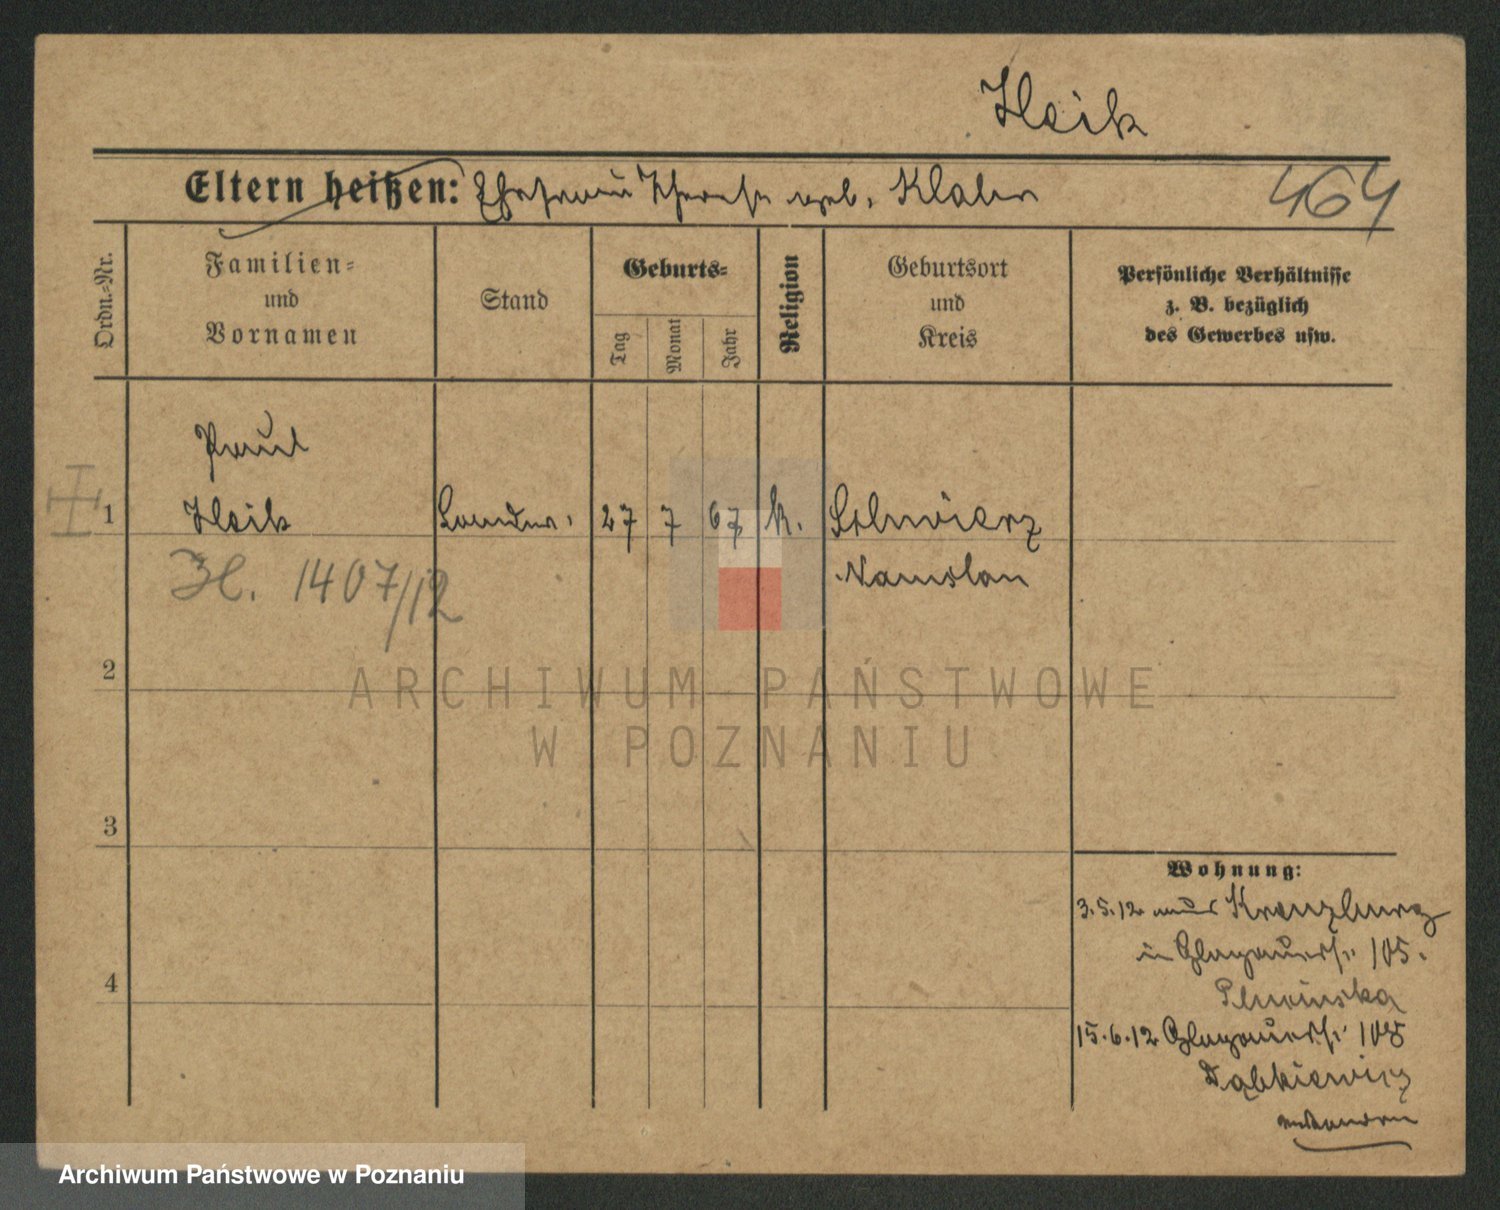 Heik
Eltern heißen: Ehefrau Therese geb. Klahr
464
Ordn.=Nr.
Familien=
und
Vornamen
Stand
Geburts=
Tag
Monat
Jahr
Religion
Geburtsort
und
Kreis
Persönliche Verhältnisse
z. B. bezüglich
des Gewerbes usw.
Paul
1 Heik 27 7 67 k.
Namslau
1407/12
2
ARCHIWUM PAŃSTWOWE
W POZNANIU
3
Wohnung:
3.5.12 aus Kreuzburg
in Glogauerstr. 105.
4
15.6.12 Glogauerstr. 108
Dąbkiewicz
Archiwum Państwowe w Poznaniu